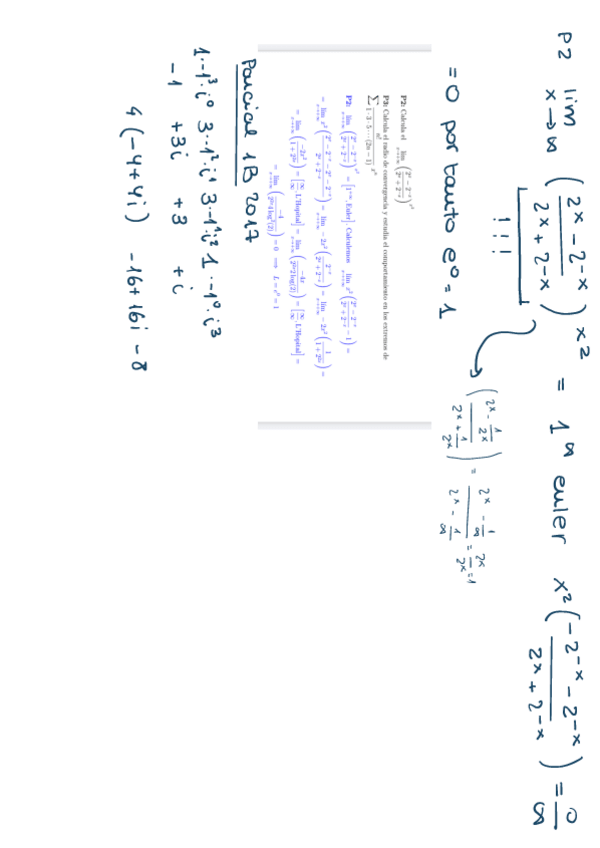 P2 lim x→∞ ( (2^x − 2^-x) / (2^x + 2^-x) )^x² = 1^∞ euler x² ( (−2^-x − 2^-x) / (2^x + 2^-x) ) = 0/∞
( (2^x − 1/2^x) / (2^x + 1/2^x) ) = (2^x − 1/∞) / (2^x − 1/∞) = 2^x/2^x = 1
= 0 por tanto e^0 = 1
P2: Calcula el lim x→+∞ ( (2^x − 2^-x) / (2^x + 2^-x) )^x²
P3: Calcula el radio de convergencia y estudia el comportamiento en los extremos de
∑ n! / (1 · 3 · 5 · · · (2n − 1)) x^n
P2: lim x→+∞ ( (2^x − 2^-x) / (2^x + 2^-x) )^x² = [1^+∞, Euler]. Calculemos lim x→+∞ x² ( (2^x − 2^-x) / (2^x + 2^-x) − 1 ) =
= lim x→+∞ x² ( (2^x − 2^-x − 2^x − 2^-x) / (2^x + 2^-x) ) = lim x→+∞ −2x² ( 2^-x / (2^x + 2^-x) ) = lim x→+∞ −2x² ( 1 / (1 + 2^2x) ) =
= lim x→+∞ ( −2x² / (1 + 2^2x) ) = [∞/∞, L'Hopital] = lim x→+∞ ( −4x / (2^2x 2 log(2)) ) = [∞/∞, L'Hopital] =
= lim x→+∞ ( −4 / (2^2x 4 log²(2)) ) = 0 ⟹ L = e^0 = 1
Parcial 1B 2017
1·-1³·i⁰ 3·-1²·i¹ 3·-1¹·i² 1·-1⁰·i³
-1 +3i +3 +i
4(-4+4i) -16+16i -8